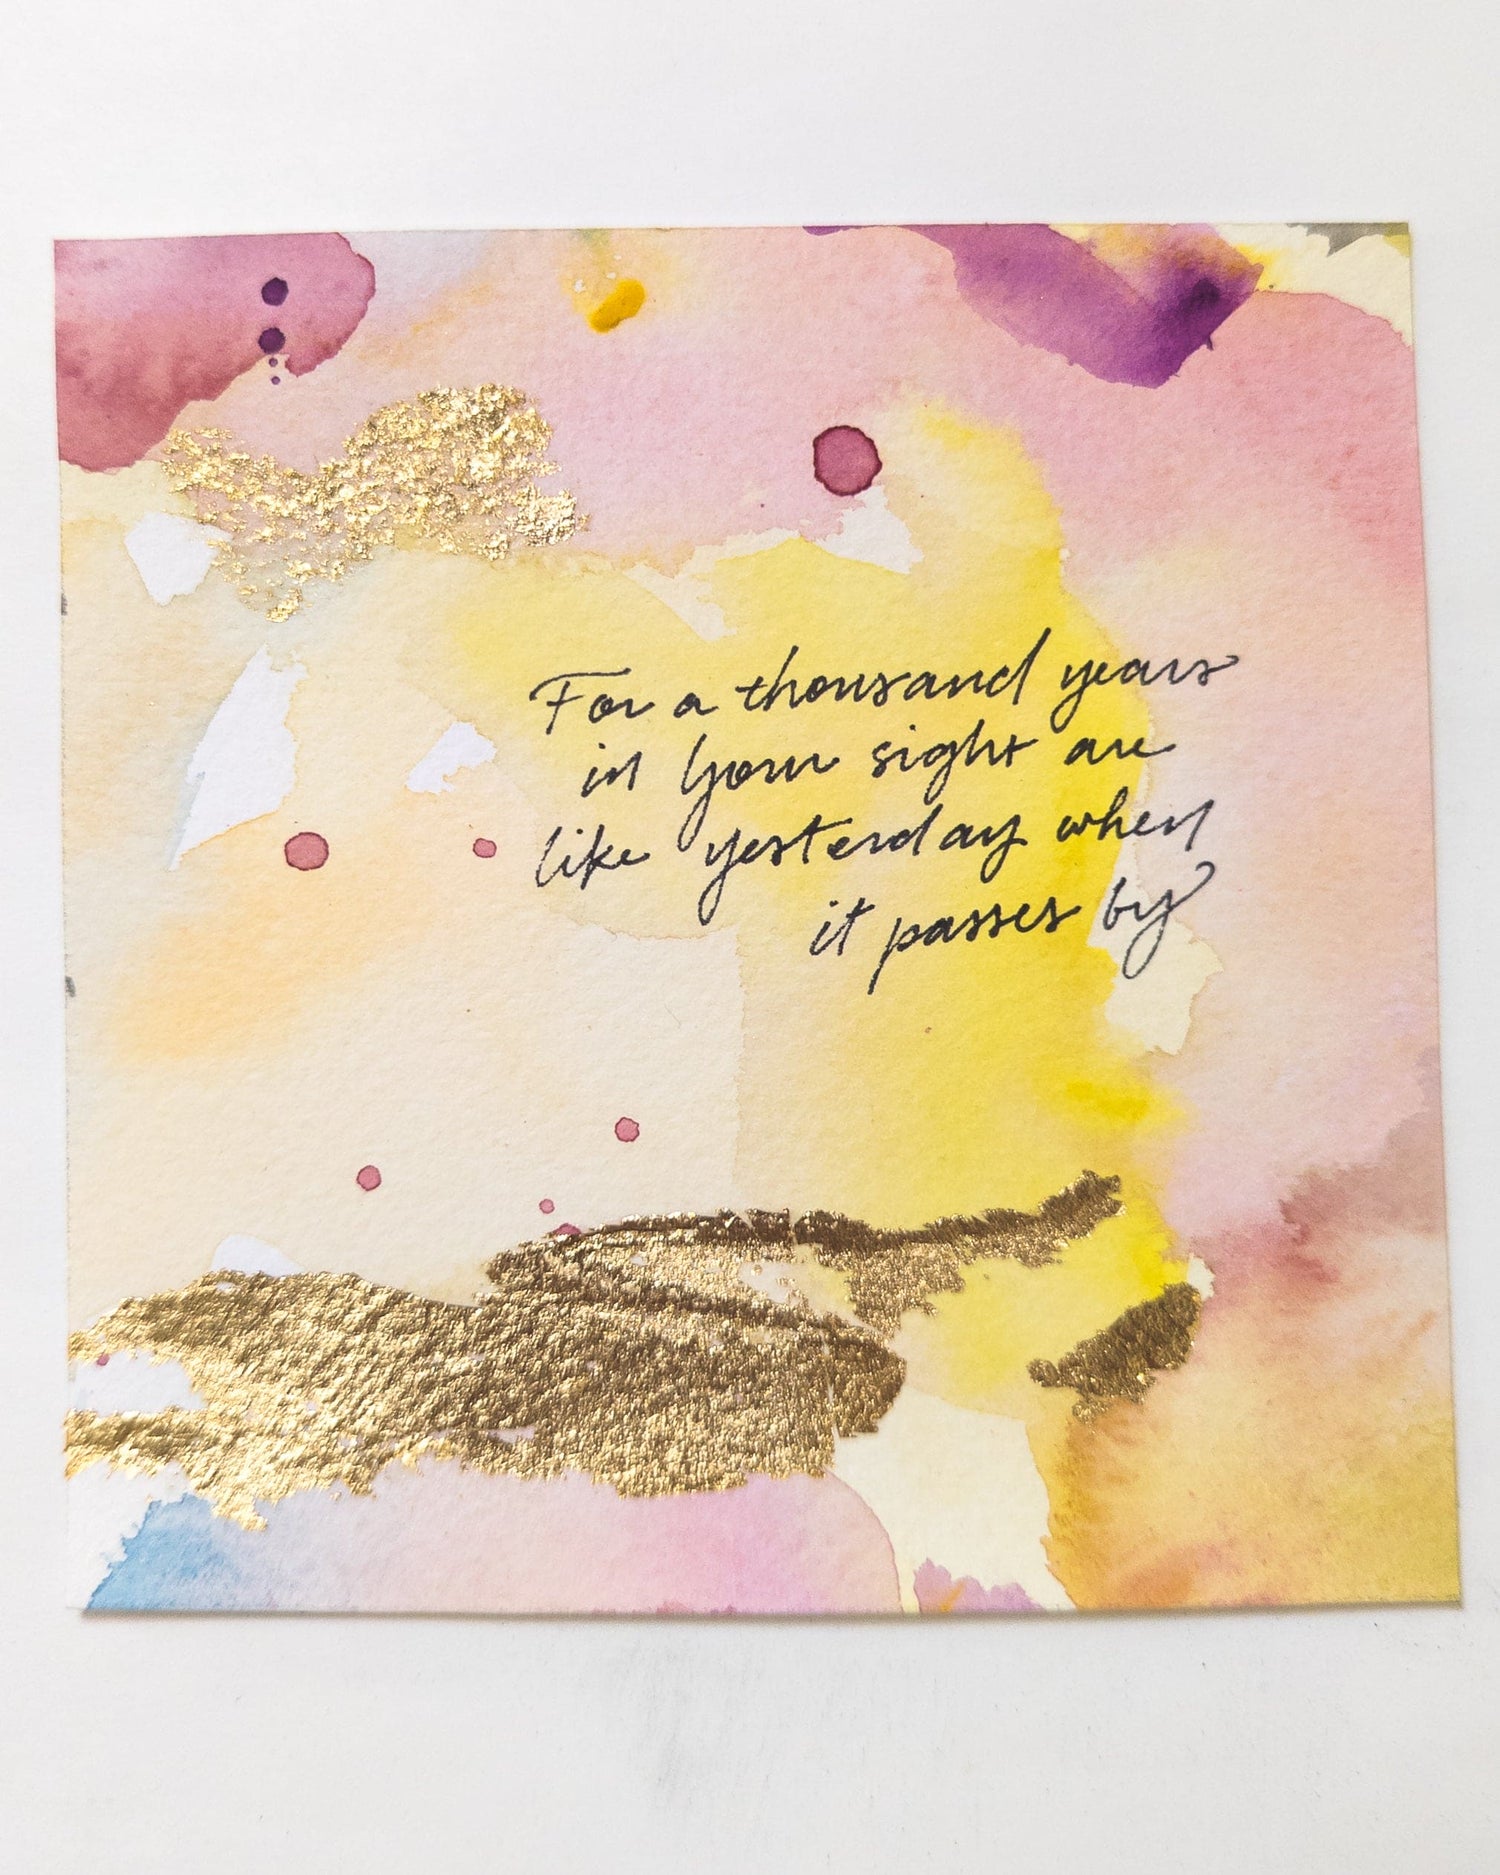 For a thousand years
in Your sight are
like yesterday when
it passes by